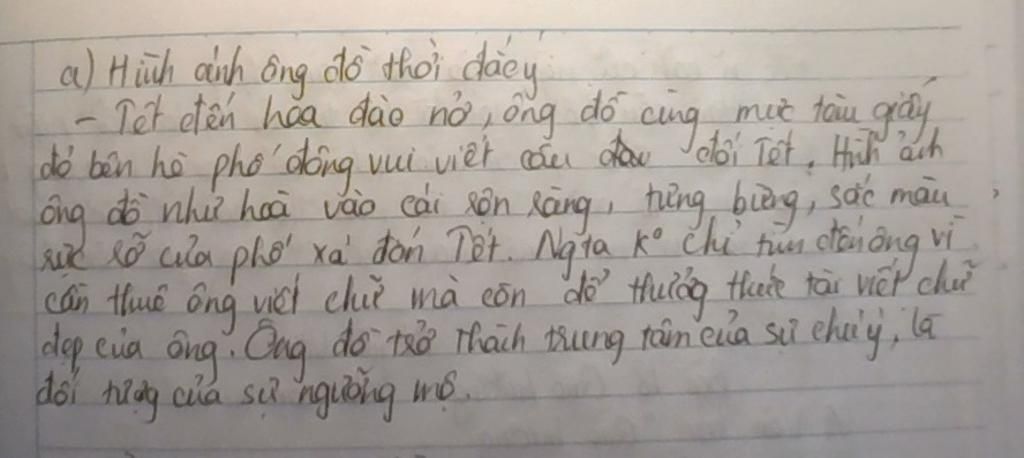 a) Hình ảnh ông đồ thời đắc ý
- Tết đến hoa đào nở, ông đồ cùng mực tàu giấy
đỏ bên hè phố đông vui viết câu đối Tết. Hình ảnh
ông đồ như hoà vào cái rộn ràng, tưng bừng, sắc màu
rực rỡ của phố xá đón Tết. Ngta k° chỉ tìm đến ông vì
cần thuê ông viết chữ mà còn để thưởng thức tài viết chữ
đẹp của ông. Ông đồ trở thành trung tâm của sự chú ý, là
đối tượng của sự ngưỡng mộ.